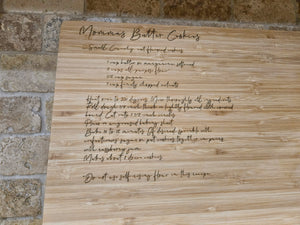 Mommas Butter Cookies
- Small, Crumbly, nut flavored cookies
1 cup butter or margarine softened
2 cups all purpose flour
1/2 cup sugar
1 cup finely chopped walnuts
Heat oven to 325 degrees. Mix thoroughly all ingredients
Roll dough 1/4 inch thick on lightly floured
board. Cut into 1 1/2
Place on ungreased baking sheet
Bake to minutes. If desired sprinkle with
confectioners sugar or put cookies together in pairs
with raspberry jam
Makes about dozen cookies
- Do not use self rising flour in this recipe